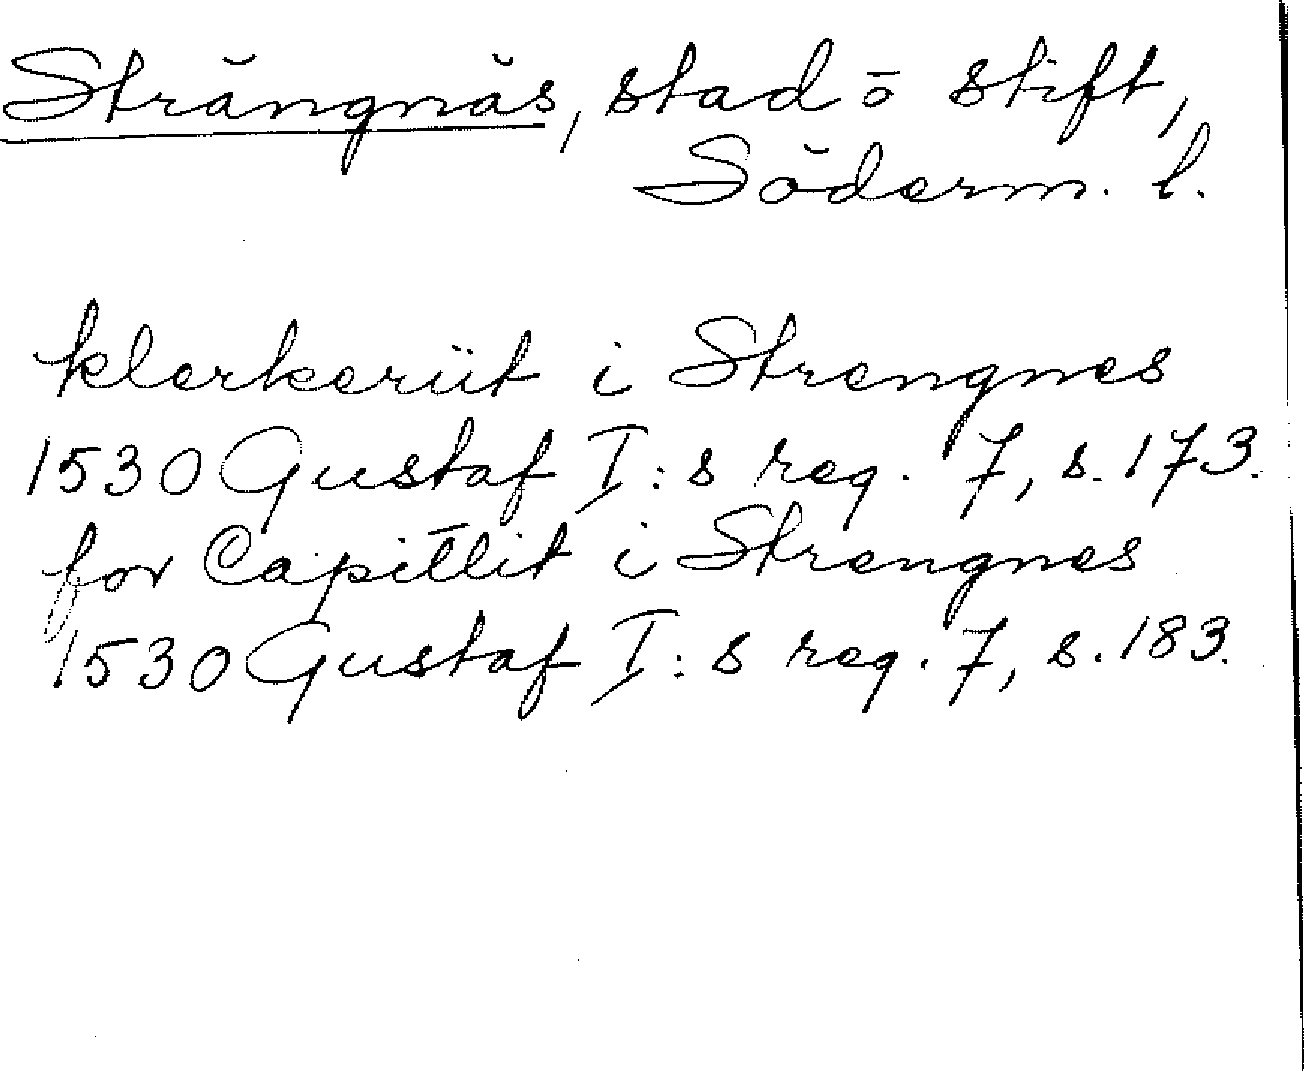 Strängnäs, stad ō stift,
Söderm. l.
klerkeriit i Strengnes
1530 Gustaf I:s reg. 7, s. 173.
for Capitlit i Strengnes
1530 Gustaf I:s reg. 7, s. 183.